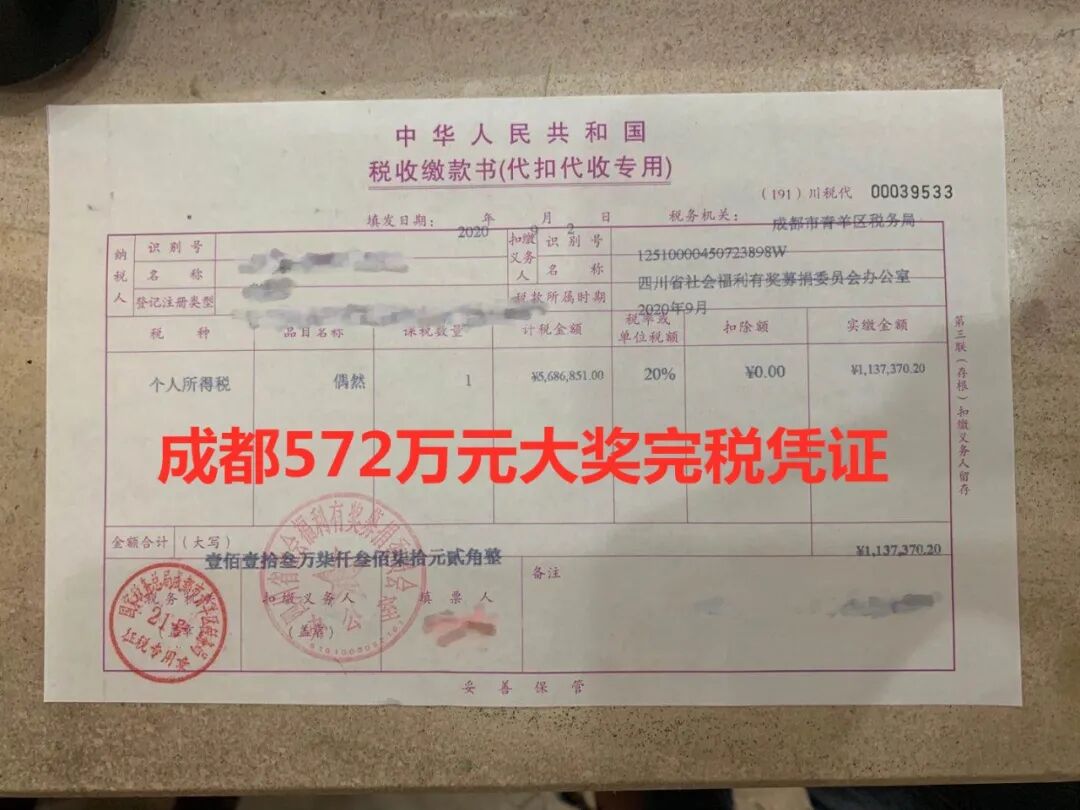 中华人民共和国
税收缴款书(代扣代收专用)
(191)川税代 00039533
填发日期: 2020 年 9 月 2 日 税务机关: 成都市青羊区税务局
纳税人 识别号 扣缴义务人 识别号 12510000450723898W
名称 名称 四川省社会福利有奖募捐委员会办公室
登记注册类型 税款所属时期 2020年9月
税种 品目名称 课税数量 计税金额 税率或单位税额 扣除额 实缴金额
个人所得税 偶然 1 ¥5,686,851.00 20% ¥0.00 ¥1,137,370.20
成都572万元大奖完税凭证
金额合计 (大写) 壹佰壹拾叁万柒仟叁佰柒拾元贰角整 ¥1,137,370.20
税务机关 (盖章) 扣缴义务人 (盖章) 填票人 备注
征税专用章
妥善保管
第三联(存根)扣缴义务人留存